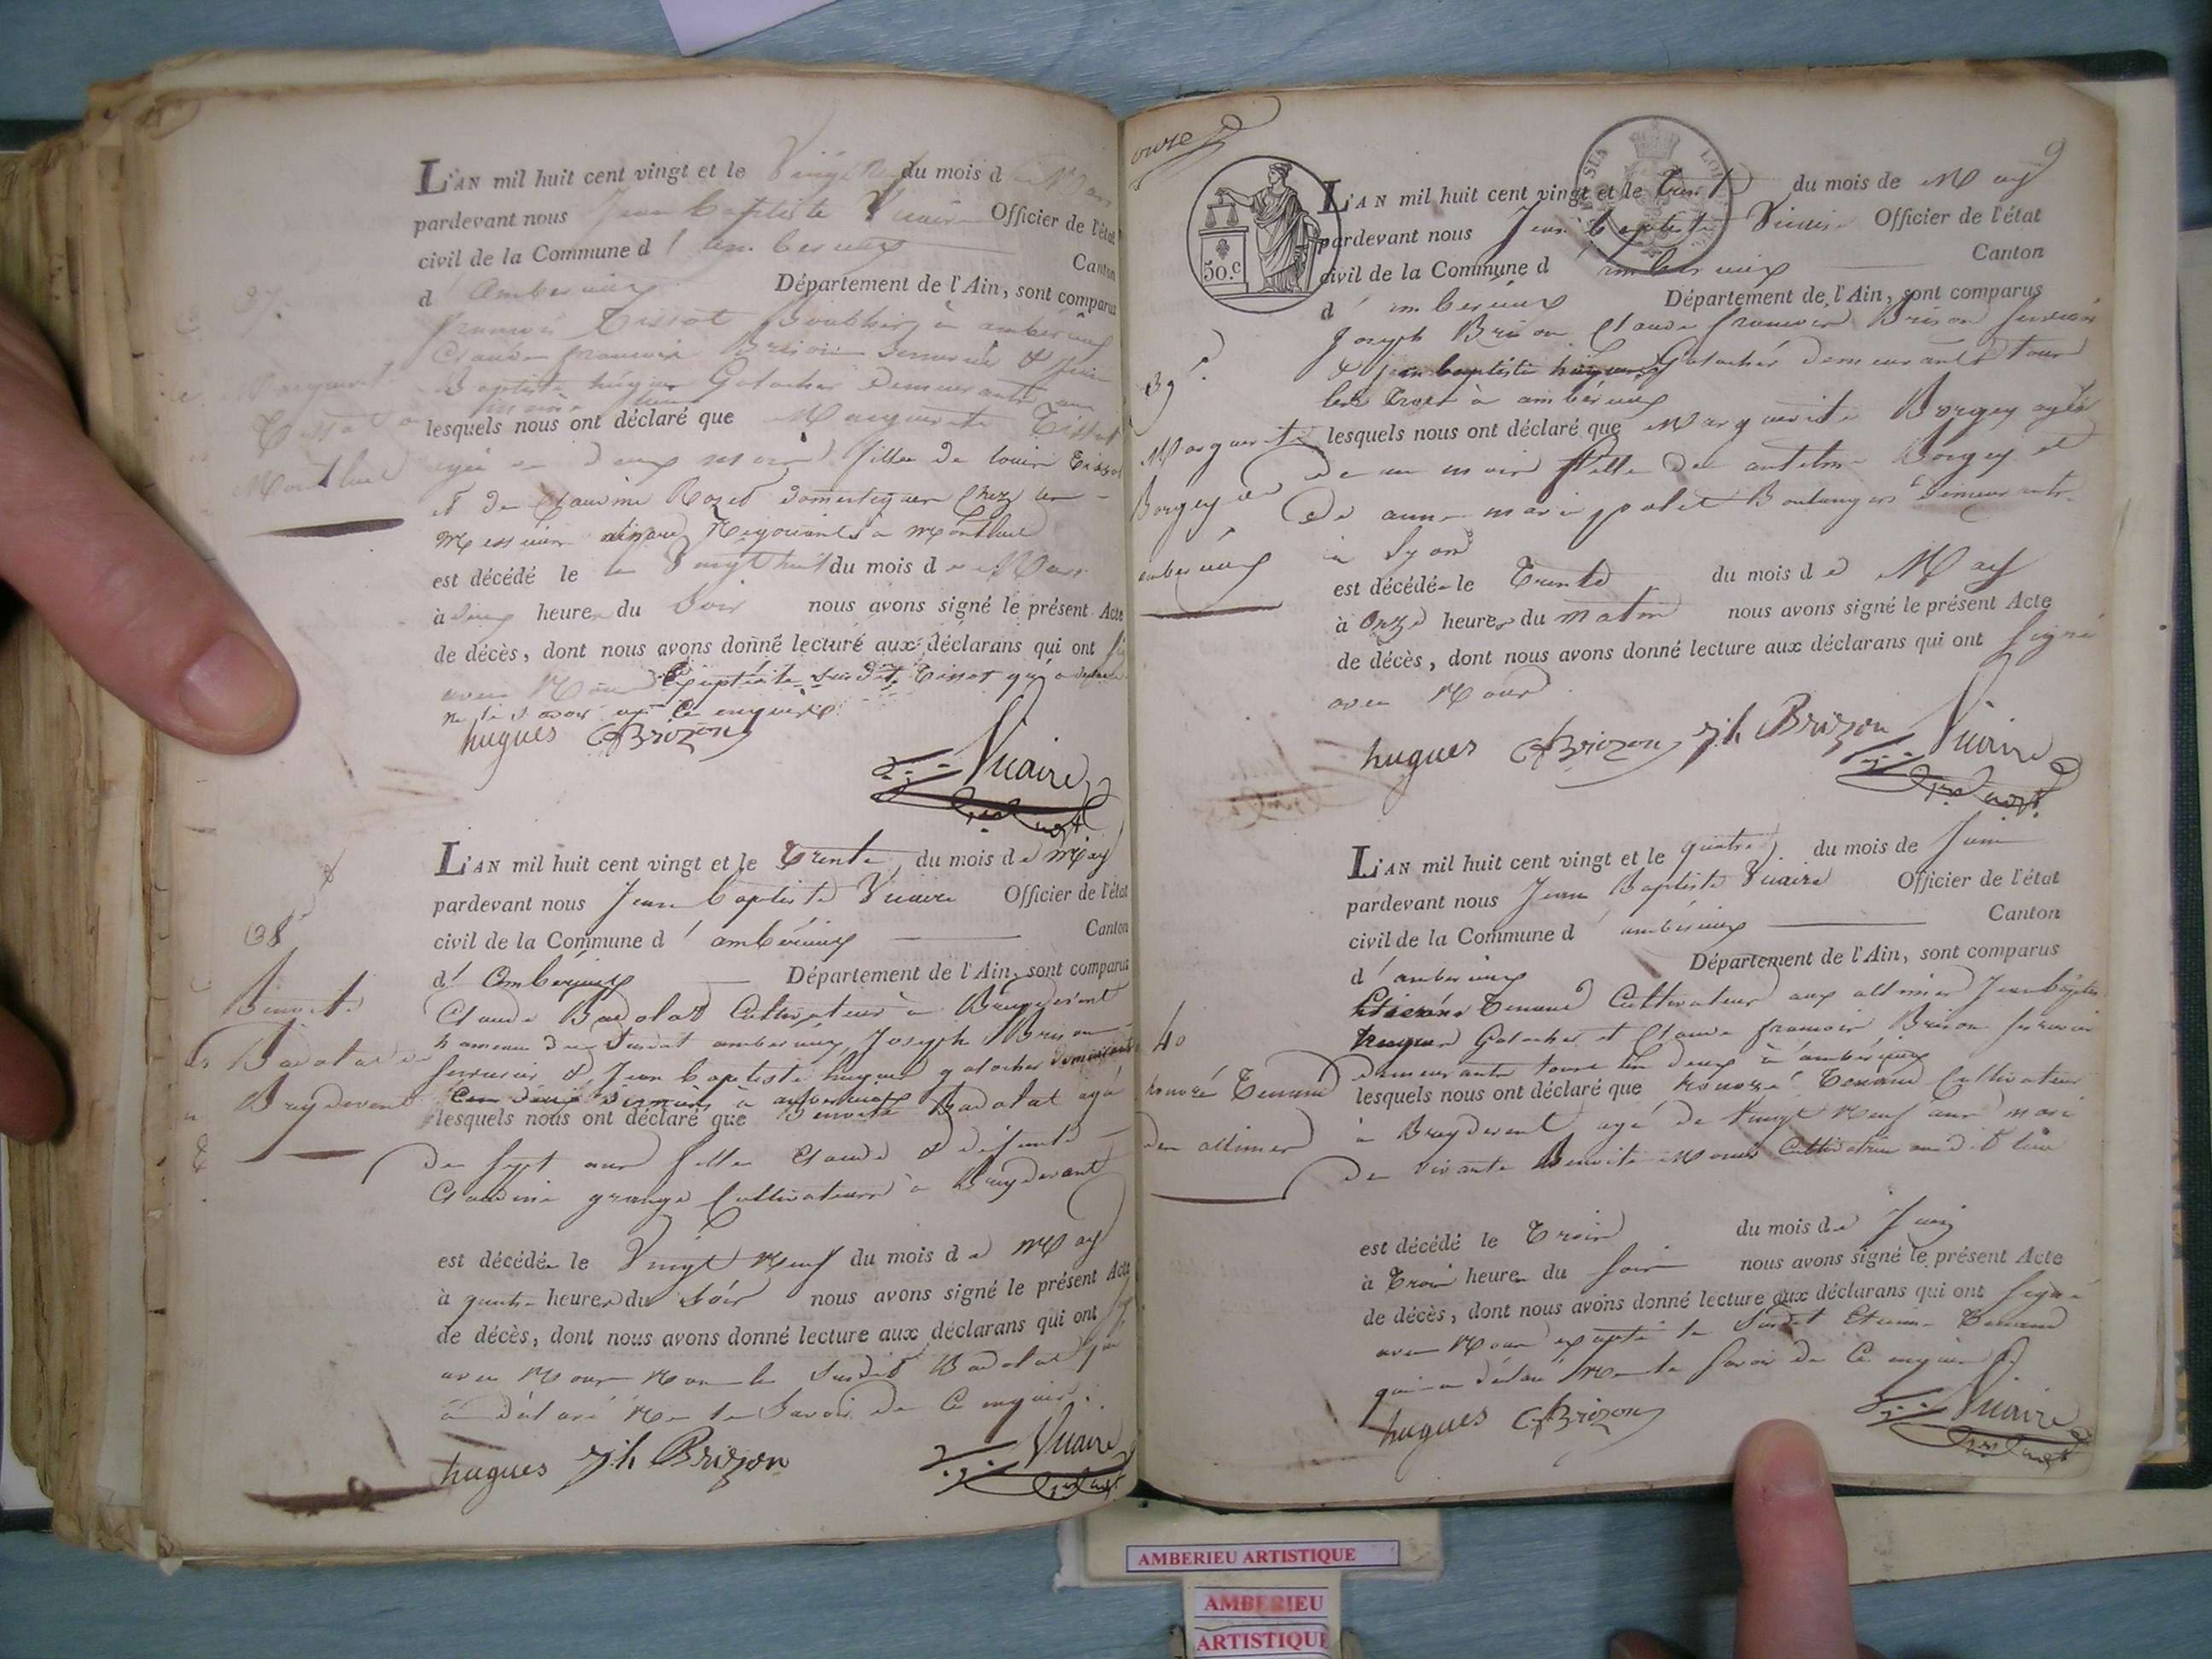 37.
Marguerite
Tissot
Montluel
L'AN mil huit cent vingt et le Vingt neuf du mois d
pardevant nous Jean baptiste Vicaire Officier de l'état
civil de la Commune d'amberieux Canton
d'Amberieux Département de l'Ain, sont comparus
françois Tissot à amberieux
Claude françois Brison serrurier & jean
Baptiste hugues Galocher Demeurants
lesquels nous ont déclaré que Marguerite Tissot
agée de deux mois fille de louis Tissot
et de Claudine Rozet domestiques chez les
Messieurs Négociants à Montluel
est décédé le Vingt huit du mois de
à cinq heures du Soir nous avons signé le présent Acte
de décès, dont nous avons donné lecture aux déclarans qui ont
avec Nous Excepté le susdit Tissot qui a déclaré
ne le savoir de ce enquis
hugues CfBrizon
Vicaire
38
Benoite
Badolat de
Breydevent
L'AN mil huit cent vingt et le Trente du mois de May
pardevant nous Jean baptiste Vicaire Officier de l'état
civil de la Commune d'amberieux Canton
d'Amberieux Département de l'Ain, sont comparus
Claude Badolat Cultivateur à Breydevent
hameau du Susdit amberieux, Joseph Brison
serrurier & Jean baptiste hugues galocher demeurants
à amberieux
lesquels nous ont déclaré que Benoite Badolat agée
de sept ans fille Claude & défunte
Claudine grange Cultivateurs à Breydevant
est décédée le Vingt Neuf du mois de May
à quatre heures du Soir nous avons signé le présent Acte
de décès, dont nous avons donné lecture aux déclarans qui ont
avec Nous Non le Susdit Badolat qui
a déclaré Ne le Savoir de Ce enquis.
hugues Jh Brizon
Vicaire
onze
9
50.c
39
Marguerite
Borgey de
amberieux
L'AN mil huit cent vingt et le trente du mois de May
pardevant nous Jean baptiste Vicaire Officier de l'état
civil de la Commune d'amberieux Canton
d'amberieux Département de l'Ain, sont comparus
Joseph Brison Claude françois Brison serrurier
& jean baptiste hugues Galocher demeurants tous
les trois à amberieux
lesquels nous ont déclaré que Marguerite Borgey agée
de un mois fille de antelme Borgey et
de anne marie polet Boulangers demeurants
à Lyon
est décédée le Trente du mois de May
à Onze heures du matin nous avons signé le présent Acte
de décès, dont nous avons donné lecture aux déclarans qui ont signé
avec Nous
hugues CfBrizon Jh Brizon Vicaire
40
honoré Tenand
des allimes
L'AN mil huit cent vingt et le quatre du mois de Juin
pardevant nous Jean Baptiste Vicaire Officier de l'état
civil de la Commune d'amberieux Canton
d'amberieux Département de l'Ain, sont comparus
Etienne Tenand Cultivateur aux allimes Jean baptiste
hugues Galocher et Claude françois Brison serrurier
Demeurants tous les deux à amberieux
lesquels nous ont déclaré que honoré Tenand Cultivateur
à Breydevent agé de Vingt Neuf ans mari
De vivante Benoite Cultivatrice au dit lieu
est décédé le Trois du mois de Juin
à Trois heures du soir nous avons signé le présent Acte
de décès, dont nous avons donné lecture aux déclarans qui ont signé
avec Nous excepté le Susdit Etienne Tenand
qui a déclaré Ne le savoir de Ce enquis
hugues CfBrizon
Vicaire
AMBERIEU ARTISTIQUE
AMBERIEU
ARTISTIQUE